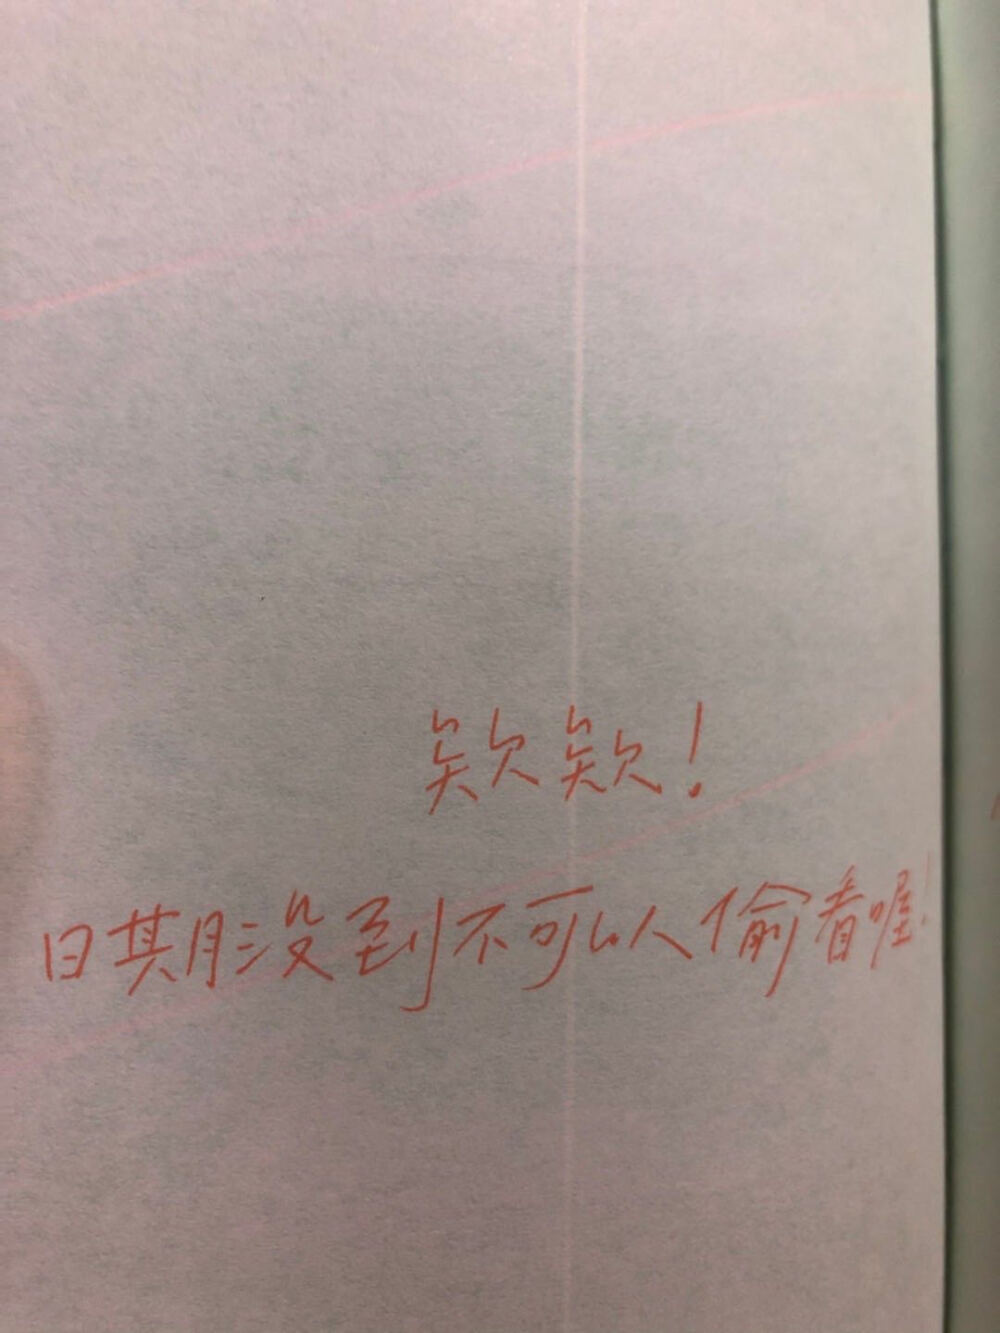 欸欸!
日期没到不可以偷看喔!